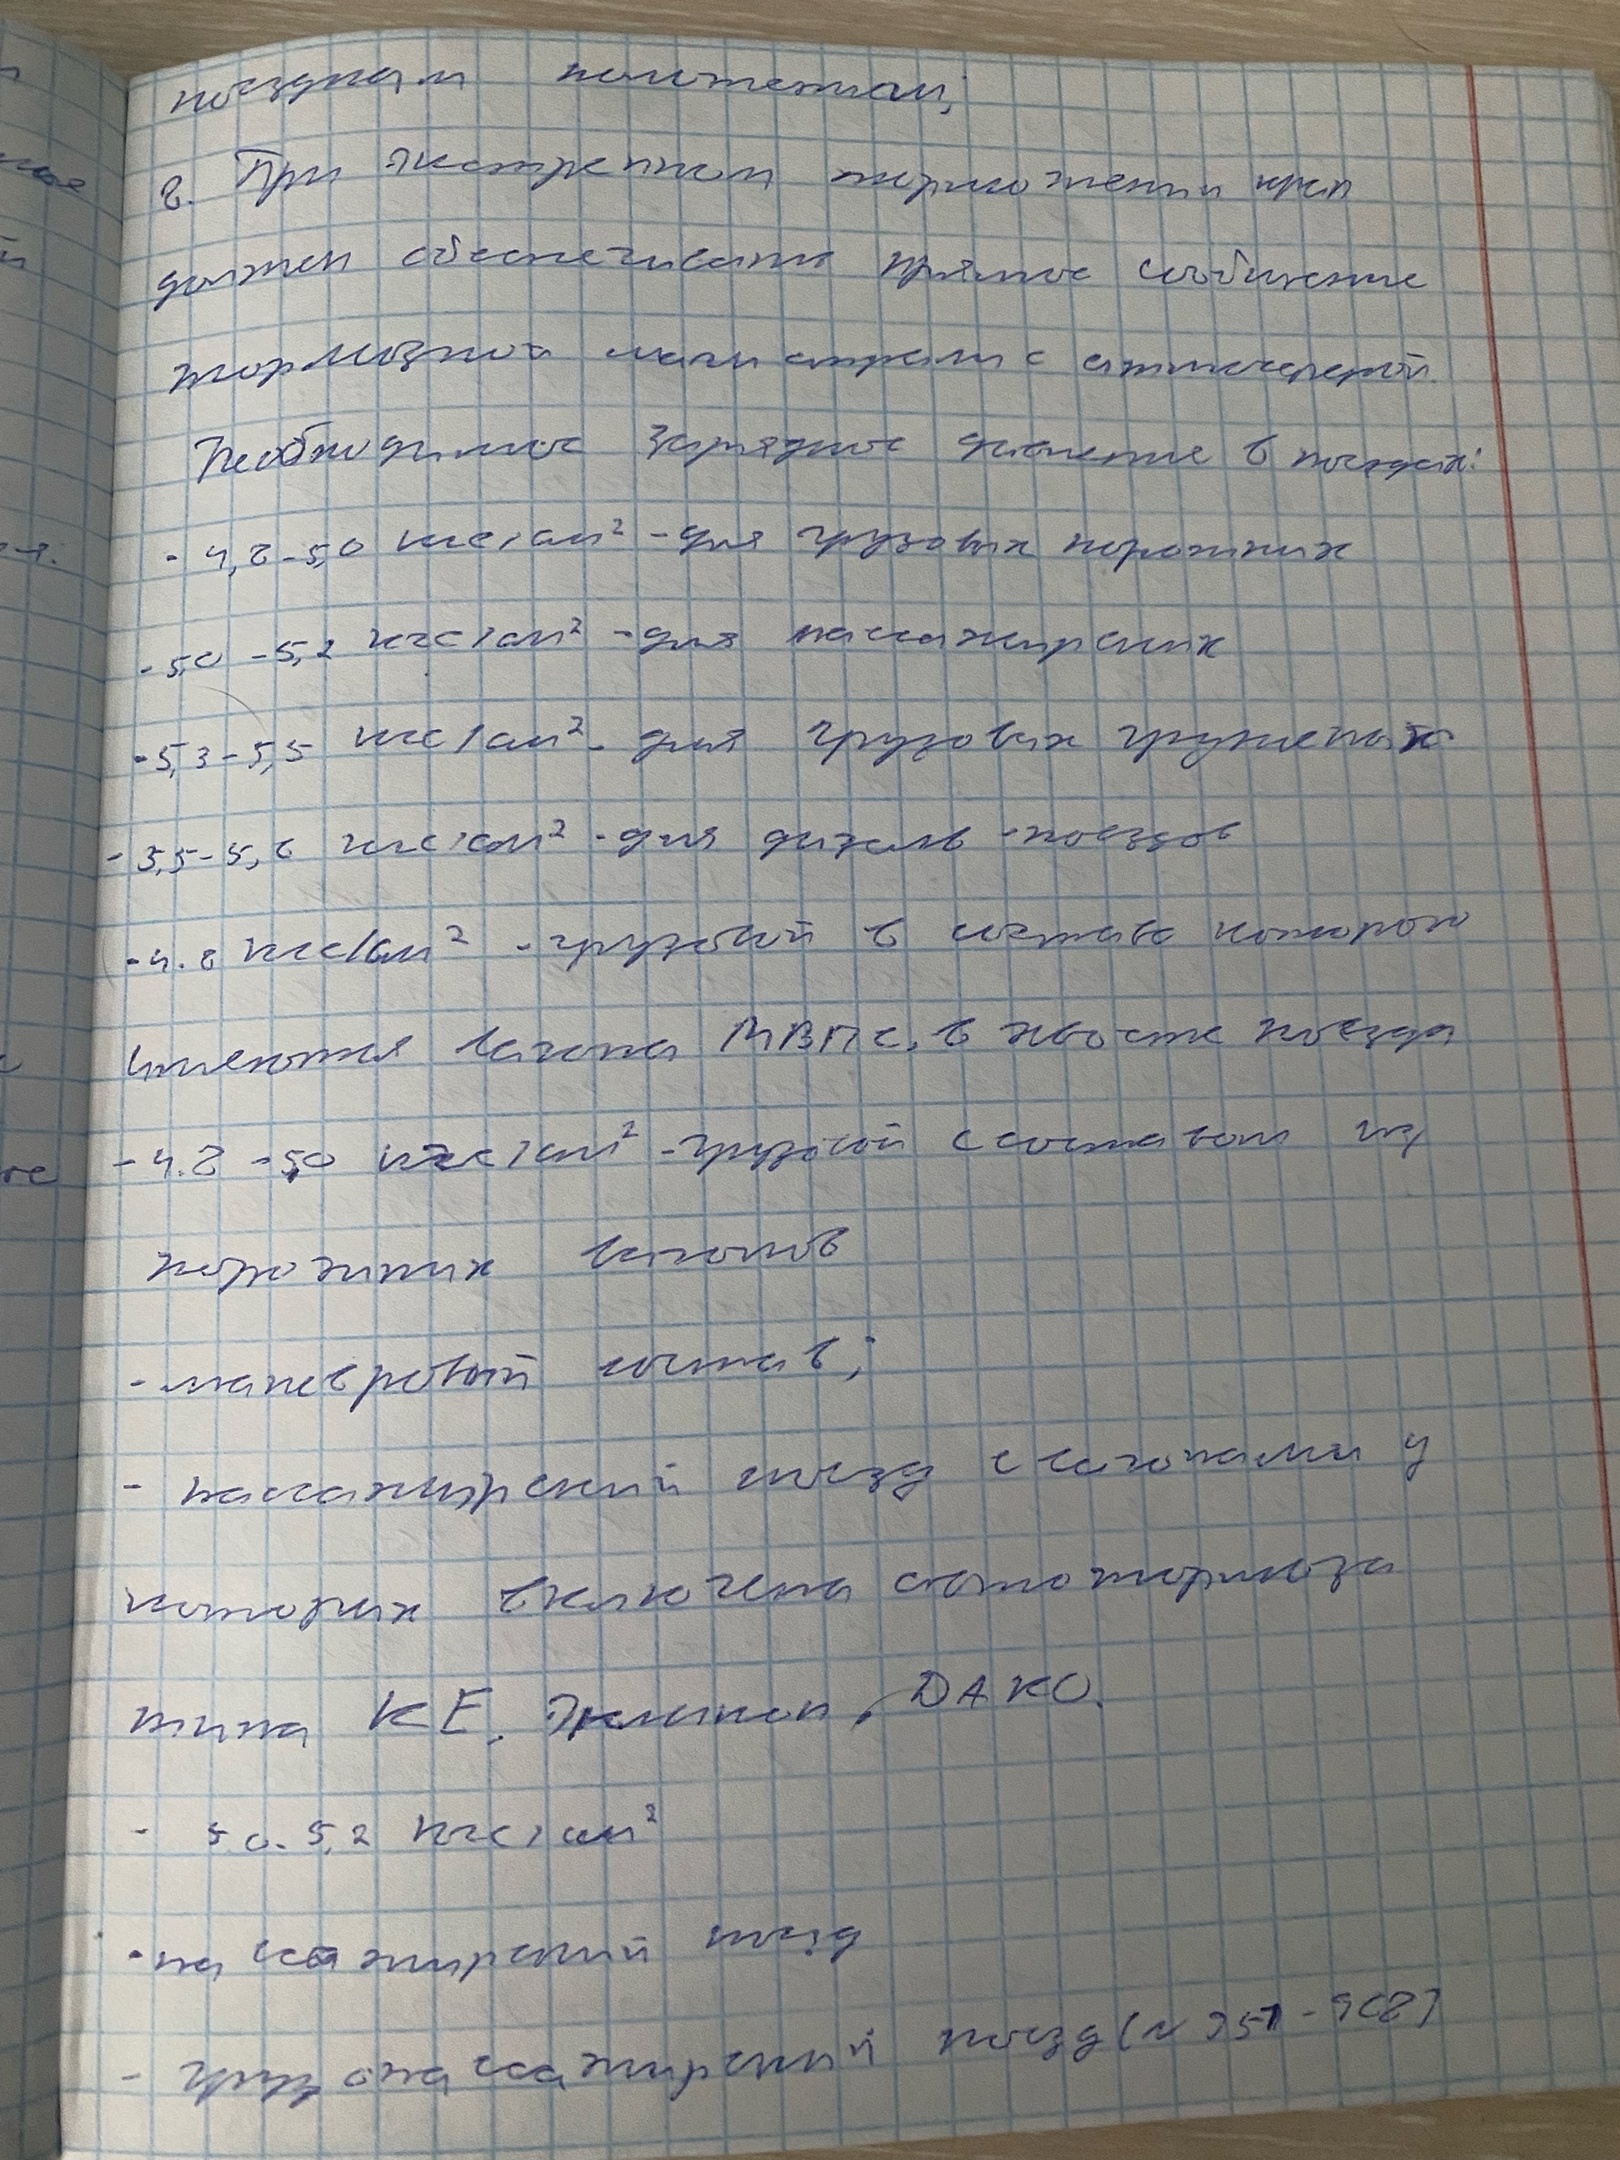 поездным положением;
8. При экстренном торможении кран
должен обеспечивать прямое сообщение
тормозной магистрали с атмосферой.
Необходимое зарядное давление в поездах:
- 4,8-5,0 кгс/см² - для грузовых порожних
- 5,0-5,2 кгс/см² - для пассажирских
- 5,3-5,5 кгс/см² - для грузовых груженых
- 3,5-5,6 кгс/см² - для дизель-поездов
- 4.8 кгс/см² - грузовой в составе которого
имеются вагоны МВПС, в хвосте поезда
- 4.8 - 5,0 кгс/см² - грузовой с составом из
порожних вагонов
- маневровый состав;
- пассажирский поезд с вагонами у
которых включена автотормоза
типа КЕ, Эрликон, DAKO.
- 5.0-5,2 кгс/см²
- пассажирский поезд
- грузопассажирский поезд (